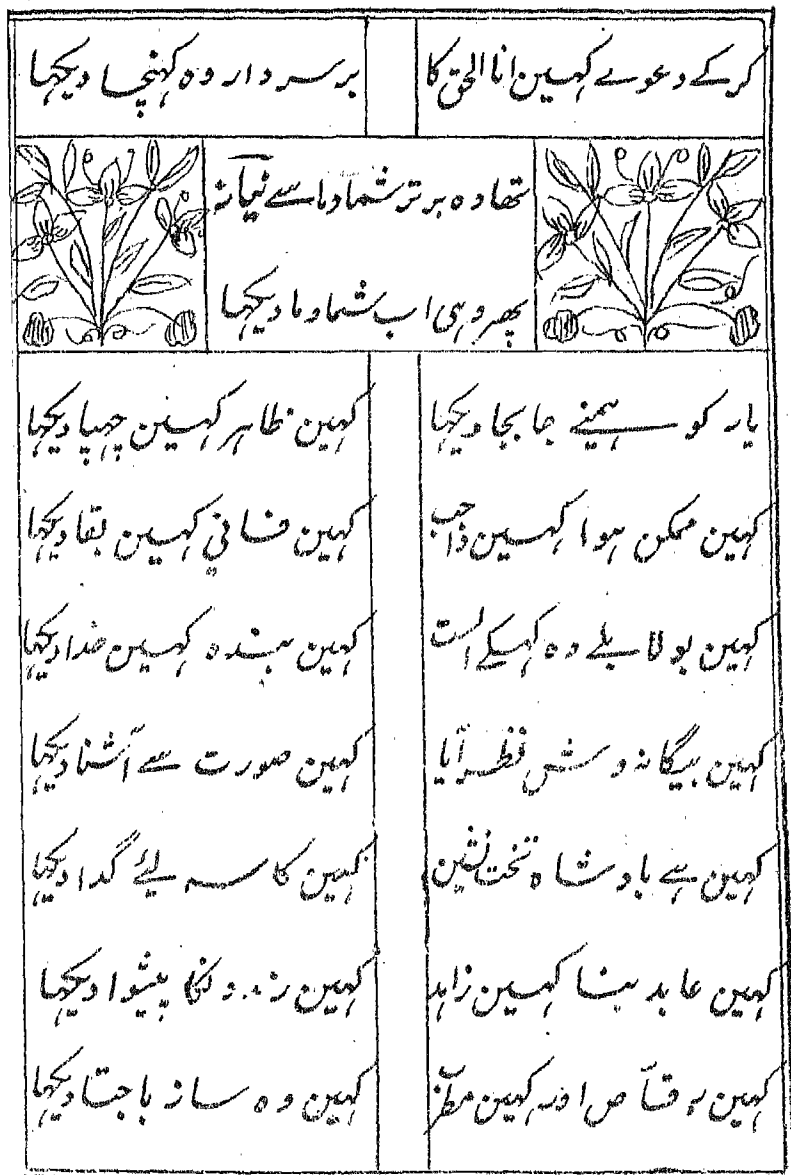 کرکے دعوے کہین انا الحق کا برسردار وہ کہنچا دیکہا
تھا وہ برتر شما و ما سے نیآز
پھر وہی اب شما و ما دیکہا
یار کو ہمنے جا بجا دیکہا کہین ظاہر کہین چہپا دیکہا
کہین ممکن ہوا کہین واجب کہین فانی کہین بقا دیکہا
کہین بولا بلے وہ کہکے الست کہین بندہ کہین خدا دیکہا
کہین بیگانہ وش نظر آیا کہین صورت سے آشنا دیکہا
کہین ہے بادشاہ تخت نشین کہین کاسہ لئے گدا دیکہا
کہین عابد بنا کہین زاہد کہین رندونکا پیشوا دیکہا
کہین رقاص اور کہین مطرب کہین وہ ساز باجتا دیکہا